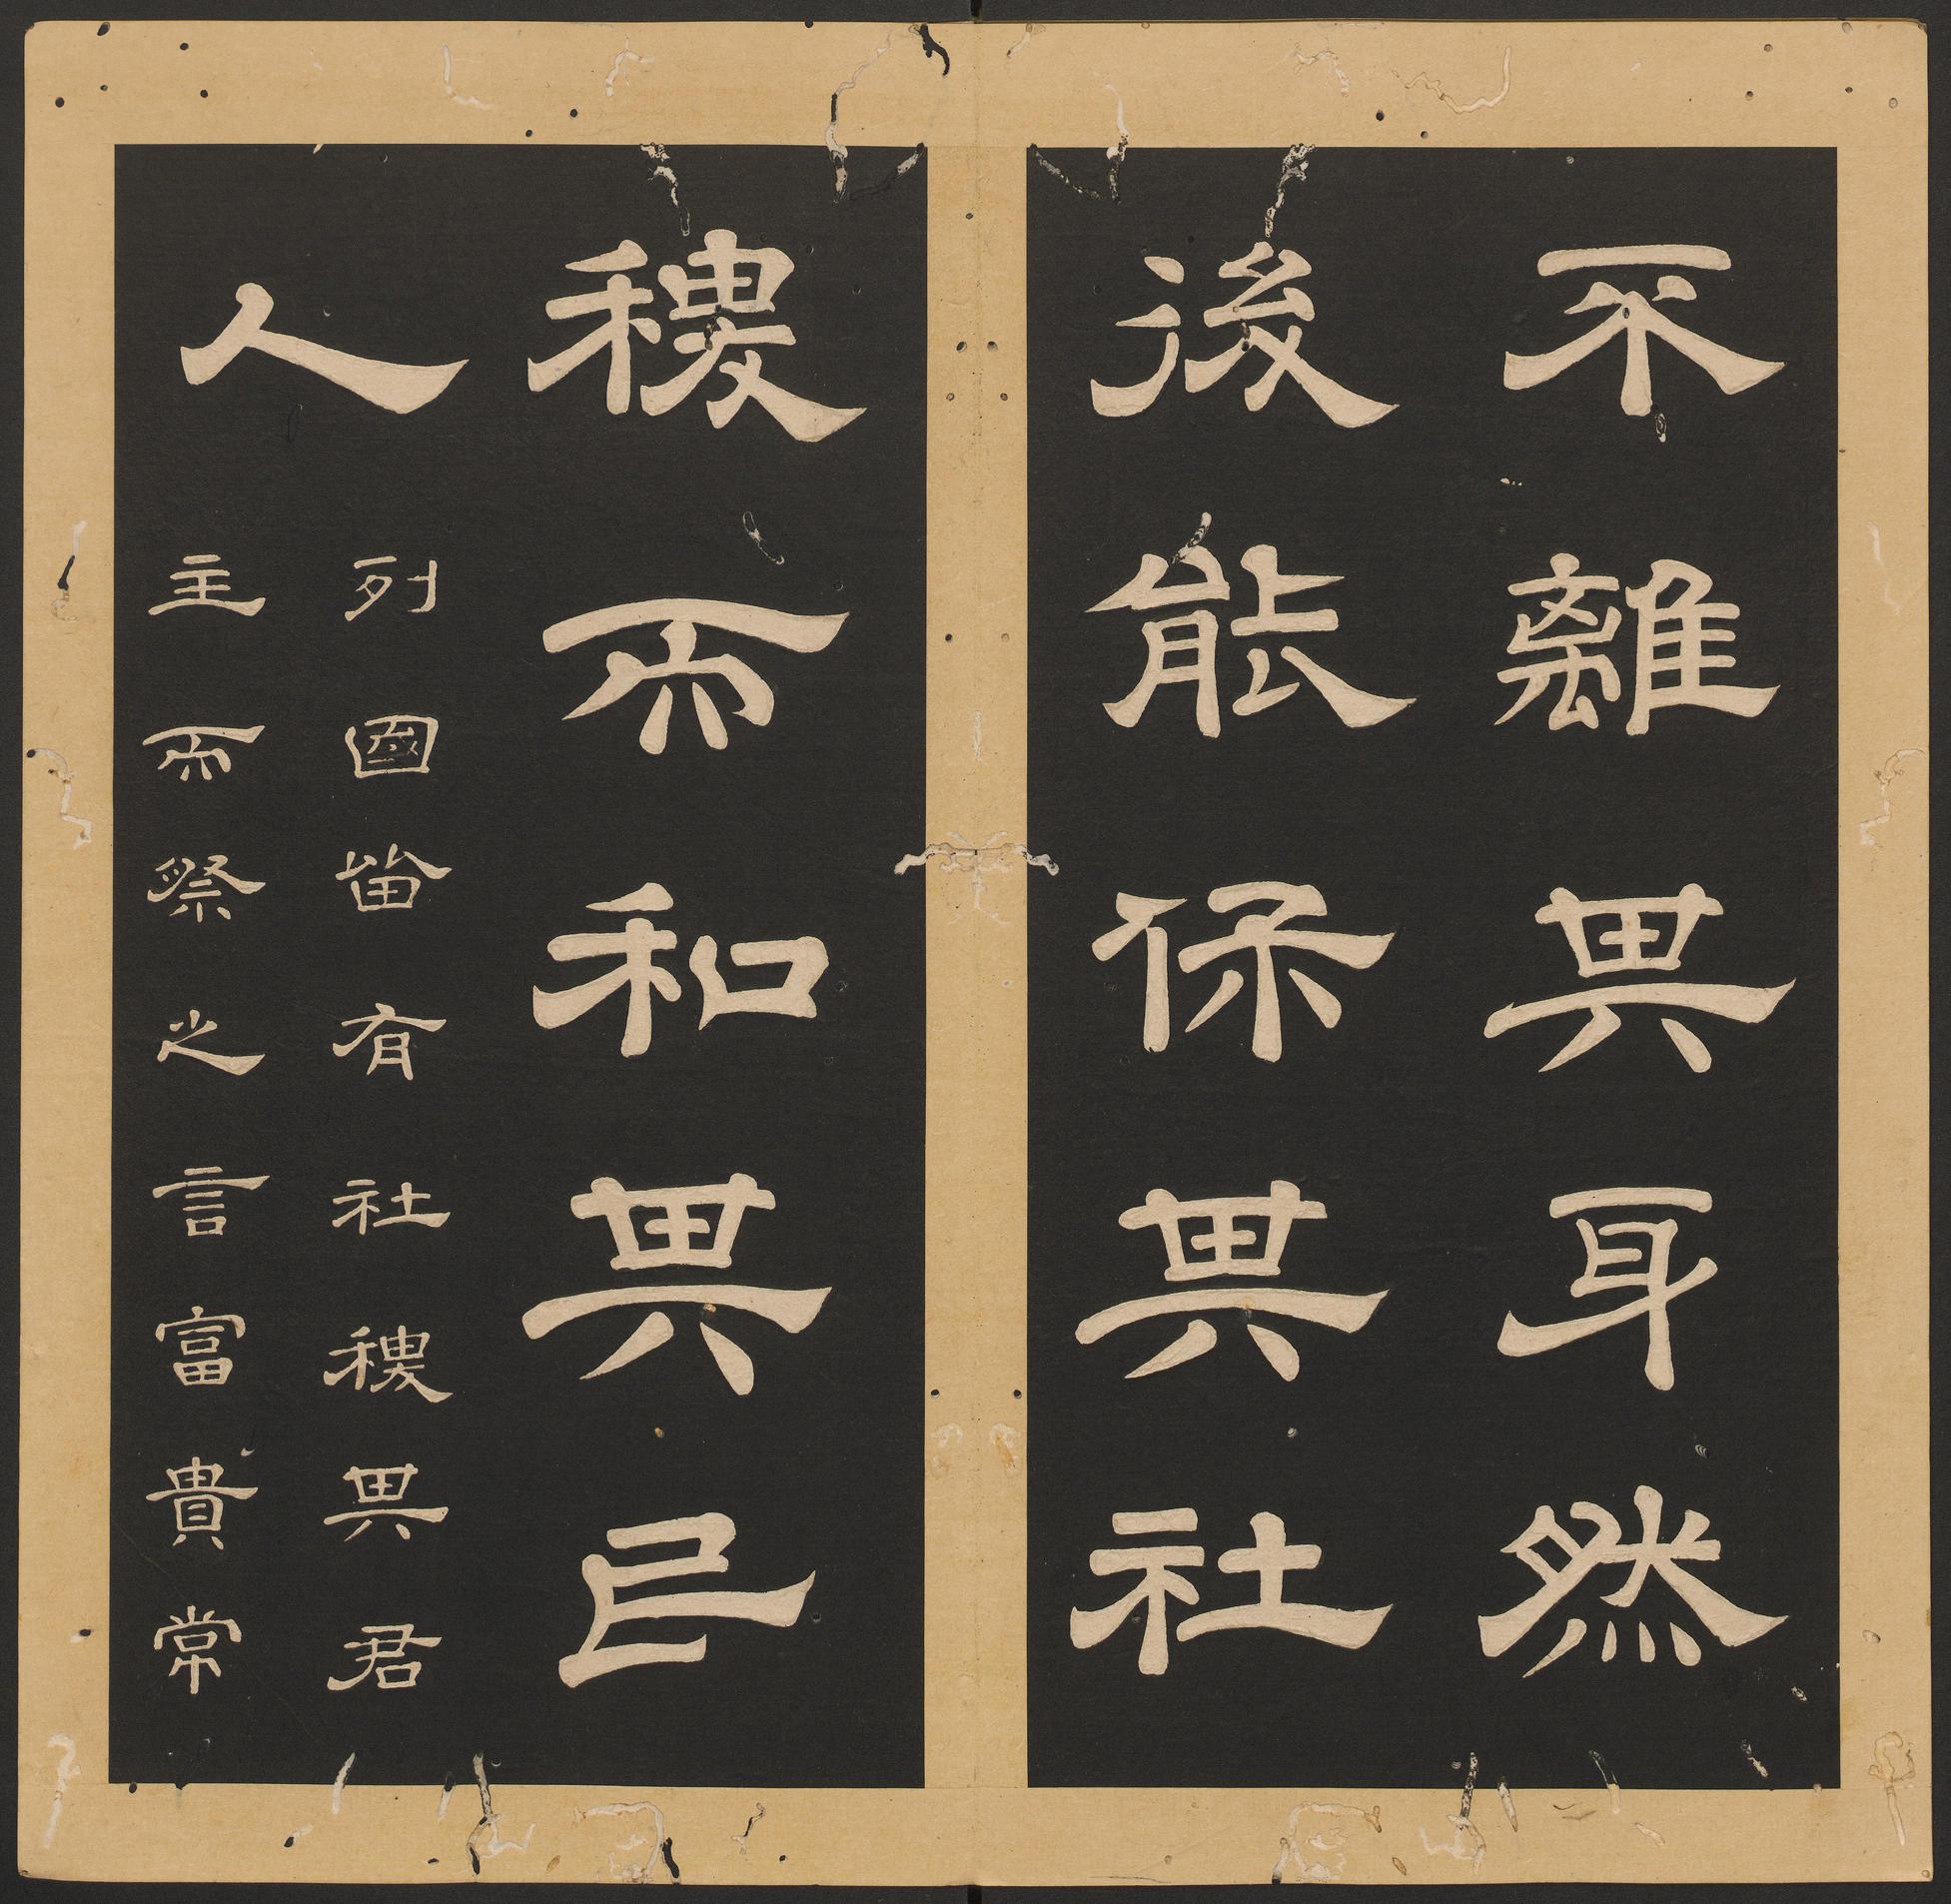 不離其身然
後能保其社
稷而和其民
人
列國皆有社稷其君
主而祭之言富貴常